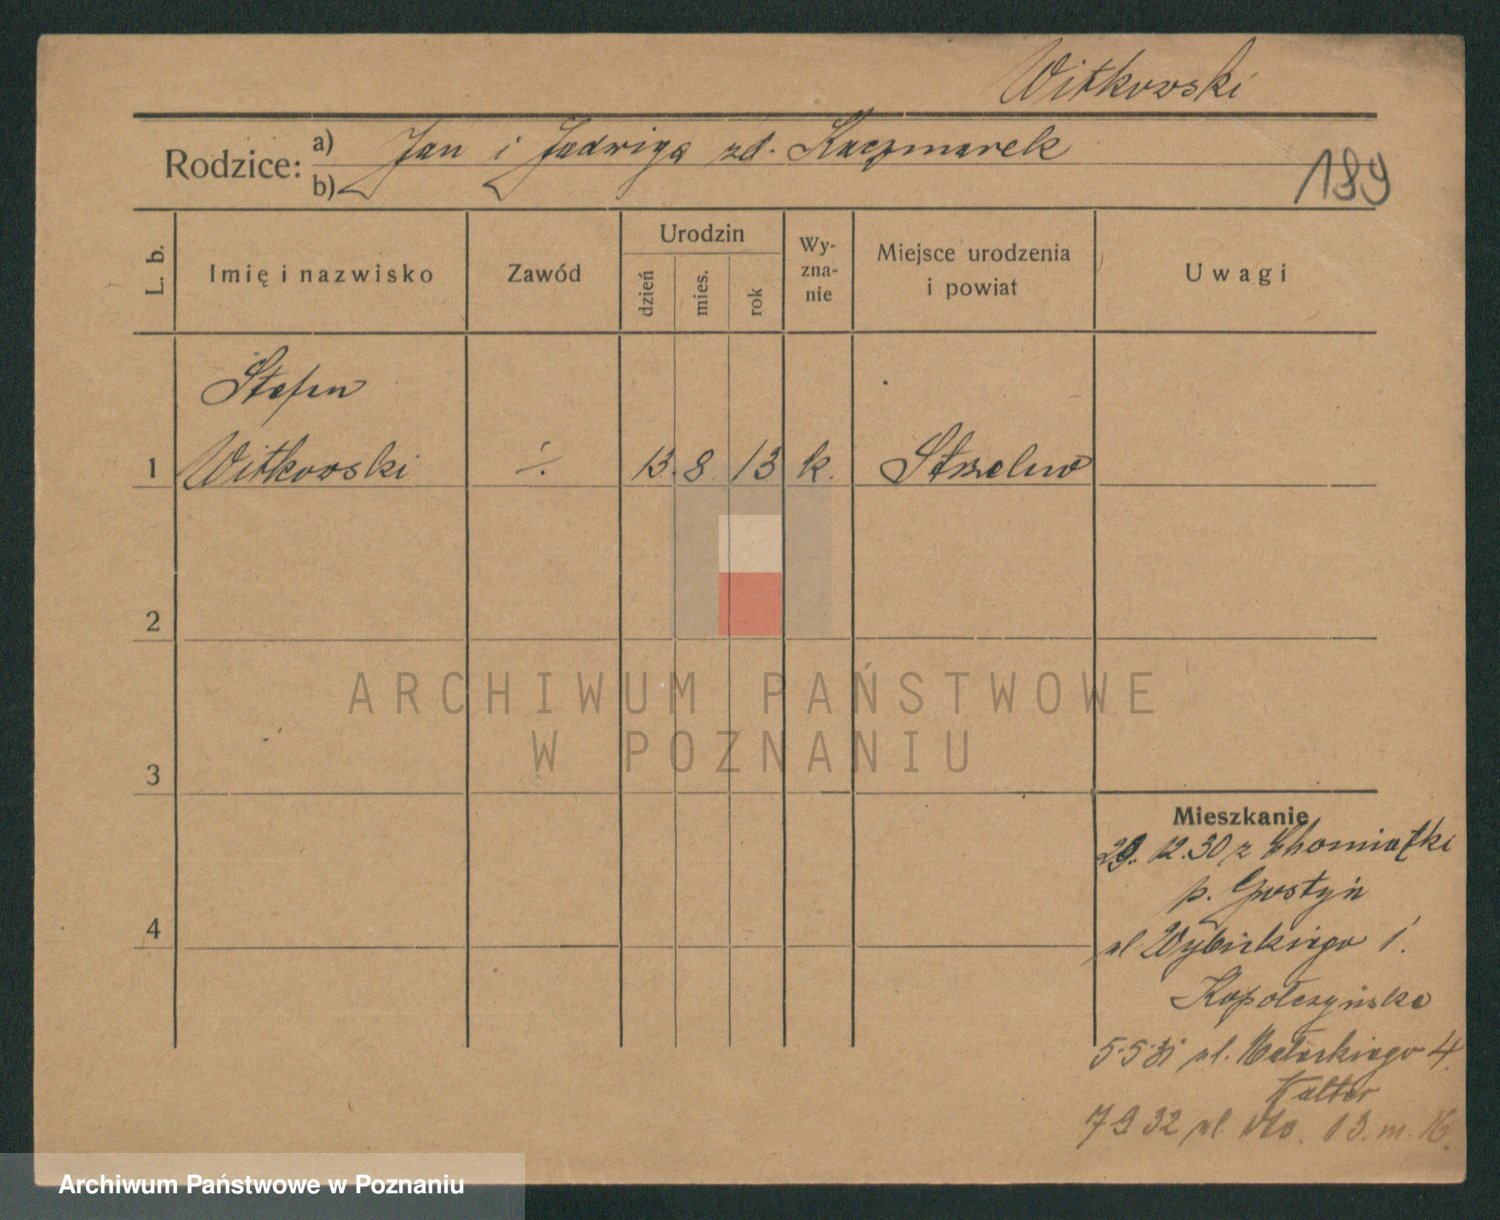 Witkowski
Rodzice: a) Jan i Jadwiga zd. Kaczmarek
b)
189
L. b.
Imię i nazwisko
Zawód
Urodzin
dzień
mies.
rok
Wy-
zna-
nie
Miejsce urodzenia
i powiat
Uwagi
Stefan
1 Witkowski ·/. 13. 8. 13 k. Strzelno
2
ARCHIWUM PAŃSTWOWE
W POZNANIU
3
Mieszkanie
29. 12. 30 z Chomiątki
p. Gostyń
4
ul Wybickiego 1.
Kopołczyńska
5.5.31 ul. 4.
7 9 32 ul. 13. m. 16.
Archiwum Państwowe w Poznaniu